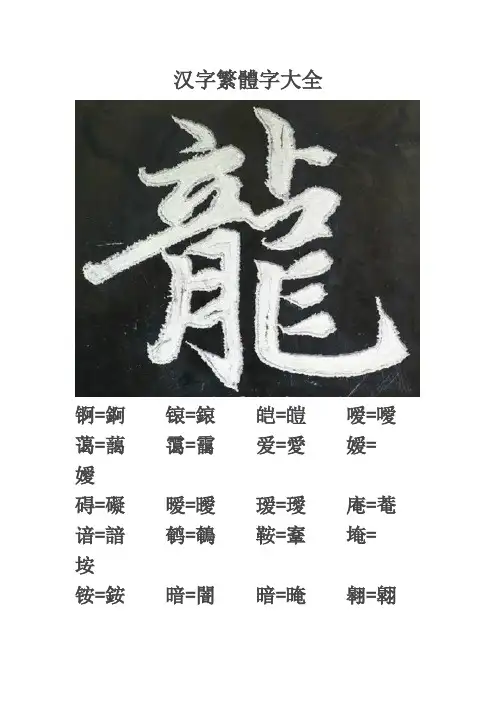 汉字繁體字大全
龍
锕=錒 锿=鎄 皑=皚 嗳=噯
蔼=藹 霭=靄 爱=愛 嫒=
嬡
碍=礙 暧=曖 瑷=璦 庵=菴
谙=諳 鹌=鵪 鞍=鞌 埯=
垵
铵=銨 暗=闇 暗=晻 翱=翺